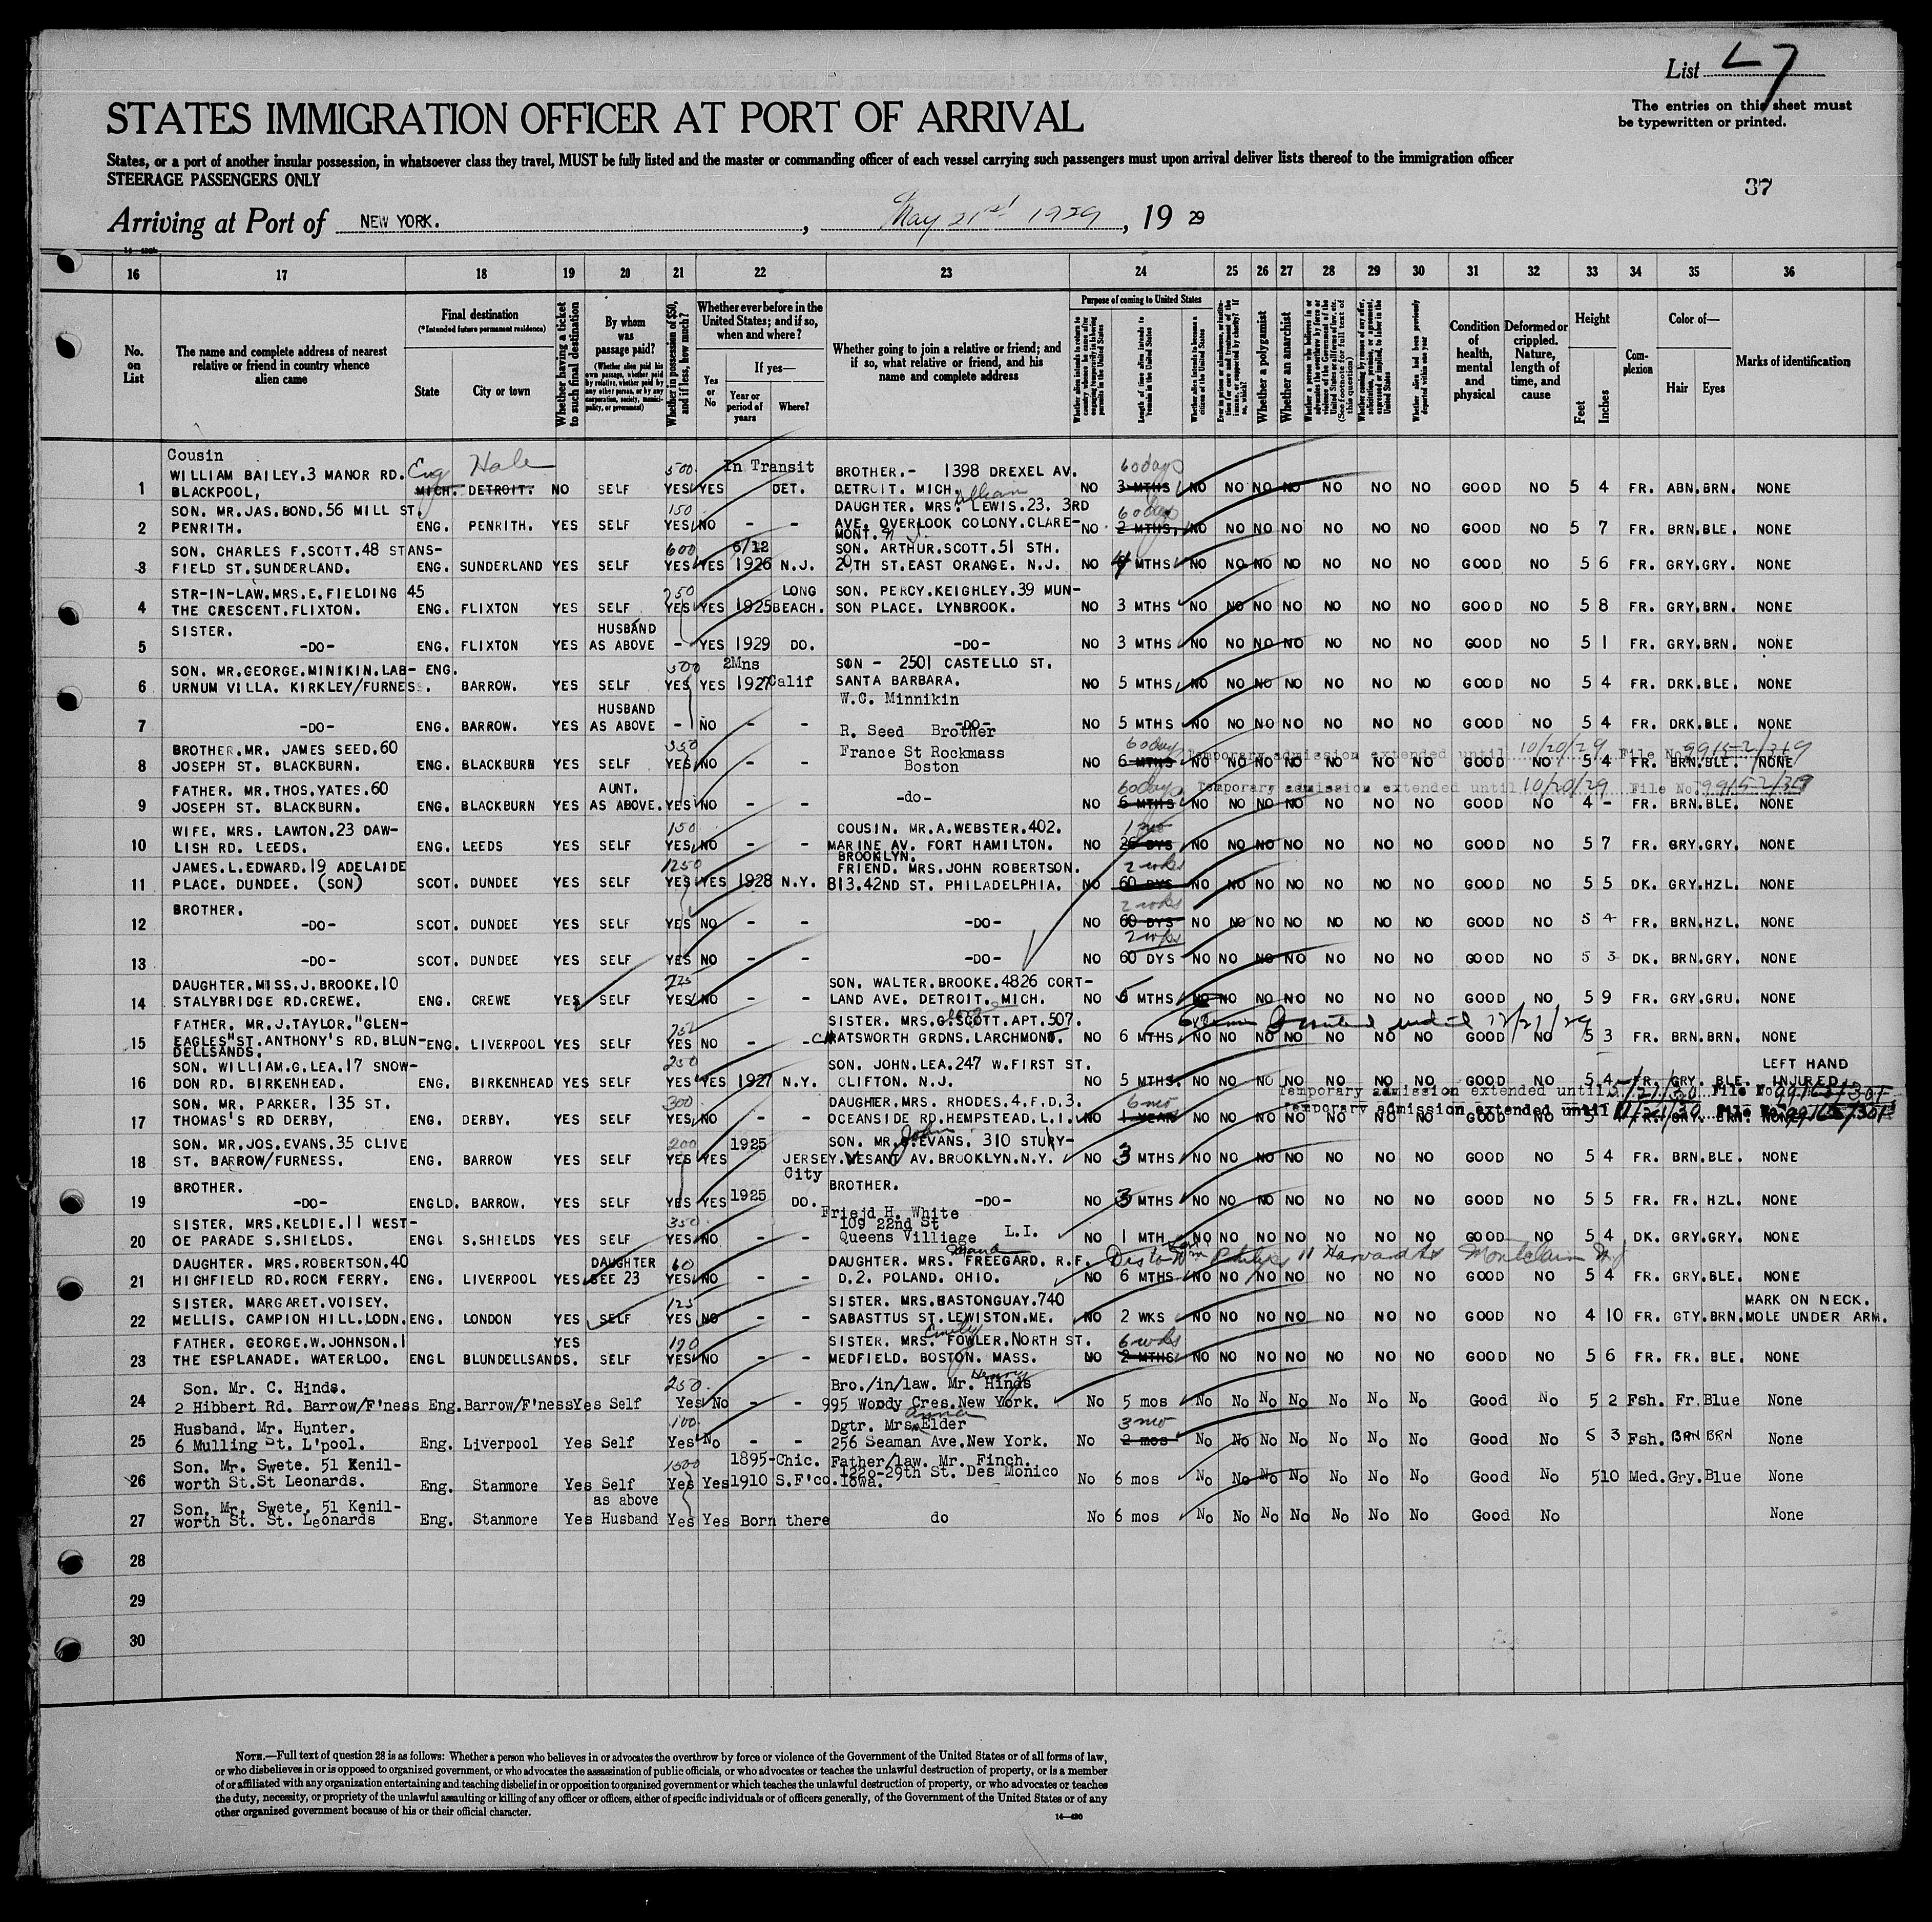 List 27
The entries on this sheet must
be typewritten or printed.
STATES IMMIGRATION OFFICER AT PORT OF ARRIVAL
States, or a port of another insular possession, in whatsoever class they travel, MUST be fully listed and the master or commanding officer of each vessel carrying such passengers must upon arrival deliver lists thereof to the immigration officer
STEERAGE PASSENGERS ONLY
37
Arriving at Port of NEW YORK. , May 21st 1929 , 19 29
16 17 18 19 20 21 22 23 24 25 26 27 28 29 30 31 32 33 34 35 36
No. on List
The name and complete address of nearest relative or friend in country whence alien came
Final destination
(*Intended future permanent residence)
State City or town
Whether having a ticket to such final destination
By whom was passage paid?
(Whether alien paid his own passage, whether paid by relative, whether paid by any other person, or by any corporation, society, municipality, or government)
Whether in possession of $50, and if less, how much?
Whether ever before in the United States; and if so, when and where?
Yes or No
If yes—
Year or period of years Where?
Whether going to join a relative or friend; and if so, what relative or friend, and his name and complete address
Purpose of coming to United States
Length of time alien intends to remain in the United States
Whether alien intends to become a citizen of the United States
Whether a polygamist
Whether an anarchist
Whether alien had been previously deported within one year
Condition of health, mental and physical
Deformed or crippled. Nature, length of time, and cause
Height
Feet Inches
Complexion
Color of—
Hair Eyes
Marks of identification
Cousin
1 WILLIAM BAILEY.3 MANOR RD. BLACKPOOL, Eng Hale MICH. DETROIT. NO SELF 500 YES YES In Transit DET. BROTHER.- 1398 DREXEL AV. DETROIT. MICH. NO 60 days 3 MTHS NO NO NO NO NO NO NO GOOD NO 5 4 FR. ABN.BRN. NONE
2 SON. MR.JAS.BOND.56 MILL ST. PENRITH. ENG. PENRITH. YES SELF 150 YES NO - - DAUGHTER. MRS. Lillian LEWIS.23. 3RD AVE. OVERLOOK COLONY.CLARE-MONT. NO 60 days 2 MTHS. NO NO NO NO NO NO NO GOOD NO 5 7 FR. BRN.BLE. NONE
3 SON. CHARLES F.SCOTT.48 STANS-FIELD ST.SUNDERLAND. ENG. SUNDERLAND YES SELF 600 YES YES 6/12 1926 N.J. SON. ARTHUR.SCOTT.51 STH. 20TH ST.EAST ORANGE. N.J. NO 4 MTHS NO NO NO NO NO NO NO GOOD NO 5 6 FR. GRY.GRY. NONE
4 STR-IN-LAW.MRS.E.FIELDING 45 THE CRESCENT.FLIXTON. ENG. FLIXTON YES SELF 250 YES YES 1925 LONG BEACH. SON. PERCY.KEIGHLEY.39 MUN-SON PLACE. LYNBROOK. NO 3 MTHS NO NO NO NO NO NO NO GOOD NO 5 8 FR. GRY.BRN. NONE
5 SISTER. -DO- ENG. FLIXTON YES HUSBAND AS ABOVE - YES 1929 DO. -DO- NO 3 MTHS NO NO NO NO NO NO NO GOOD NO 5 1 FR. GRY.BRN. NONE
6 SON. MR.GEORGE.MINIKIN.LAB-URNUM VILLA. KIRKLEY/FURNESS. ENG. BARROW. YES SELF 500 YES YES 2Mns 1927 Calif SON - 2501 CASTELLO ST. SANTA BARBARA. W.C. Minnikin NO 5 MTHS NO NO NO NO NO NO NO GOOD NO 5 4 FR. DRK.BLE. NONE
7 -DO- ENG. BARROW. YES HUSBAND AS ABOVE - NO - - -DO- NO 5 MTHS NO NO NO NO NO NO NO GOOD NO 5 4 FR. DRK.BLE. NONE
8 BROTHER.MR. JAMES SEED.60 JOSEPH ST. BLACKBURN. ENG. BLACKBURN YES SELF 350 YES NO - - R. Seed Brother France St Rockmass Boston NO 60 days 6 MTHS NO NO NO NO NO NO NO GOOD NO 5 4 FR. BRN.BLE. NONE
Temporary admission extended until 10/20/29 File No. 99152/319
9 FATHER. MR.THOS.YATES.60 JOSEPH ST. BLACKBURN. ENG. BLACKBURN YES AUNT. AS ABOVE. YES NO - - -do- NO 60 days 6 MTHS NO NO NO NO NO NO NO GOOD NO 4 - FR. BRN.BLE. NONE
Temporary admission extended until 10/20/29 File No. 99152/319
10 WIFE. MRS. LAWTON.23 DAW-LISH RD. LEEDS. ENG. LEEDS YES SELF 150 YES NO - - COUSIN. MR.A.WEBSTER.402. MARINE AV. FORT HAMILTON. BROOKLYN. NO 1 mo 26 DYS NO NO NO NO NO NO NO GOOD NO 5 7 FR. GRY.GRY. NONE
11 JAMES.L.EDWARD.19 ADELAIDE PLACE. DUNDEE. (SON) SCOT. DUNDEE YES SELF 1250 YES YES 1928 N.Y. FRIEND. MRS.JOHN ROBERTSON. 813.42ND ST. PHILADELPHIA. NO 2 wks 60 DYS NO NO NO NO NO NO NO GOOD NO 5 5 DK. GRY.HZL. NONE
12 BROTHER. -DO- SCOT. DUNDEE YES SELF YES NO - - -DO- NO 2 wks 60 DYS NO NO NO NO NO NO NO GOOD NO 5 4 FR. BRN.HZL. NONE
13 -DO- SCOT. DUNDEE YES SELF YES NO - - -DO- NO 2 wks 60 DYS NO NO NO NO NO NO NO GOOD NO 5 3 DK. BRN.GRY. NONE
14 DAUGHTER.MISS.J.BROOKE.10 STALYBRIDGE RD.CREWE. ENG. CREWE YES SELF 225 YES NO - - SON. WALTER.BROOKE.4826 CORT-LAND AVE. DETROIT. MICH. NO 5 MTHS NO NO NO NO NO NO NO GOOD NO 5 9 FR. GRY.GRU. NONE
15 FATHER. MR.J.TAYLOR."GLEN-EAGLES"ST.ANTHONY'S RD.BLUN-DELLSANDS. ENG. LIVERPOOL YES SELF YES NO - - SISTER. MRS.G.SCOTT.APT.507. CHATSWORTH GRDNS.LARCHMONT. NO 6 MTHS NO NO NO NO NO NO NO GOOD NO 5 3 FR. BRN.BRN. NONE
until 12/21/29
16 SON. WILLIAM.G.LEA.17 SNOW-DON RD. BIRKENHEAD. ENG. BIRKENHEAD YES SELF 250 YES YES 1927 N.Y. SON. JOHN.LEA.247 W.FIRST ST. CLIFTON. N.J. NO 5 MTHS. NO NO NO NO NO NO NO GOOD NO 5 4 FR. GRY. BLE. LEFT HAND INJURED.
Temporary admission extended until 5/21/30 File No.
17 SON. MR. PARKER. 135 ST. THOMAS'S RD DERBY, ENG. DERBY. YES SELF 300 YES NO - - DAUGHTER.MRS. RHODES.4.F.D.3. OCEANSIDE RD.HEMPSTEAD.L.I. NO 6 mo 1 YEAR NO NO NO NO NO NO NO GOOD NO 5 FR. GRY. BRN. NONE
Temporary admission extended until File No.
18 SON. MR.JOS.EVANS.35 CLIVE ST. BARROW/FURNESS. ENG. BARROW YES SELF 200 YES YES 1925 JERSEY City SON. MR. John EVANS. 310 STURY-VESANT AV.BROOKLYN.N.Y. NO 3 MTHS NO NO NO NO NO NO NO GOOD NO 5 4 FR. BRN.BLE. NONE
19 BROTHER. -DO- ENGLD. BARROW. YES SELF YES YES 1925 DO. BROTHER. -DO- NO 3 MTHS NO NO NO NO NO NO NO GOOD NO 5 5 FR. FR. HZL. NONE
20 SISTER. MRS.KELDIE.11 WEST-OE PARADE S.SHIELDS. ENGL S.SHIELDS YES SELF 350 YES NO - - Friejd H. White 109 22nd St Queens Villiage L.I. NO 1 MTH NO NO NO NO NO NO NO GOOD NO 5 4 DK. GRY.GRY. NONE
21 DAUGHTER. MRS.ROBERTSON.40 HIGHFIELD RD.ROCK FERRY. ENG. LIVERPOOL YES DAUGHTER SEE 23 60 YES NO - - DAUGHTER. MRS. Maud FREEGARD. R.F. D.2. POLAND. OHIO. NO 6 MTHS NO NO NO NO NO NO NO GOOD NO 5 4 FR. GRY.BLE. NONE
11 Harvard St Montclair NJ
22 SISTER. MARGARET.VOISEY. MELLIS. CAMPION HILL.LODN. ENG. LONDON YES SELF 125 YES NO - - SISTER. MRS.BASTONGUAY.740 SABASTTUS ST.LEWISTON.ME. NO 2 WKS NO NO NO NO NO NO NO GOOD NO 4 10 FR. GTY.BRN. MARK ON NECK. MOLE UNDER ARM.
23 FATHER. GEORGE.W.JOHNSON.1 THE ESPLANADE. WATERLOO. ENGL BLUNDELLSANDS. YES SELF 170 YES NO - - SISTER. MRS. Emily FOWLER.NORTH ST. MEDFIELD. BOSTON. MASS. NO 6 wks 2 MTHS NO NO NO NO NO NO NO GOOD NO 5 6 FR. FR. BLE. NONE
24 Son. Mr. C. Hinds. 2 Hibbert Rd. Barrow/F'ness Eng. Barrow/F'ness Yes Self 250 Yes No - - Bro./in/law. Mr. Henry Hinds 995 Woody Cres.New York. No 5 mos No No No No No No No Good No 5 2 Fsh. Fr. Blue None
25 Husband. Mr. Hunter. 6 Mulling St. L'pool. Eng. Liverpool Yes Self 100 Yes No - - Dgtr. Mrs. Anna Elder 256 Seaman Ave.New York. No 3 mo 2 mos No No No No No No No Good No 5 3 Fsh. BRN BRN None
26 Son. Mr. Swete. 51 Kenil-worth St.St Leonards. Eng. Stanmore Yes Self 1500 Yes Yes 1895-1910 Chic. S.F'co. Father/law. Mr. Finch. 1220-29th St. Des Monico Iowa. No 6 mos No No No No No No No Good No 510 Med. Gry. Blue None
27 Son. Mr. Swete. 51 Kenil-worth St. St. Leonards Eng. Stanmore Yes as above Husband Yes Yes Born there do No 6 mos No No No No No No No Good No None
28
29
30
NOTE.—Full text of question 28 is as follows: Whether a person who believes in or advocates the overthrow by force or violence of the Government of the United States or of all forms of law,
or who disbelieves in or is opposed to organized government, or who advocates the assassination of public officials, or who advocates or teaches the unlawful destruction of property, or is a member
of or affiliated with any organization entertaining and teaching disbelief in or opposition to organized government or which teaches the unlawful destruction of property, or who advocates or teaches
the duty, necessity, or propriety of the unlawful assaulting or killing of any officer or officers, either of specific individuals or of officers generally, of the Government of the United States or of any
other organized government because of his or their official character.
14—430